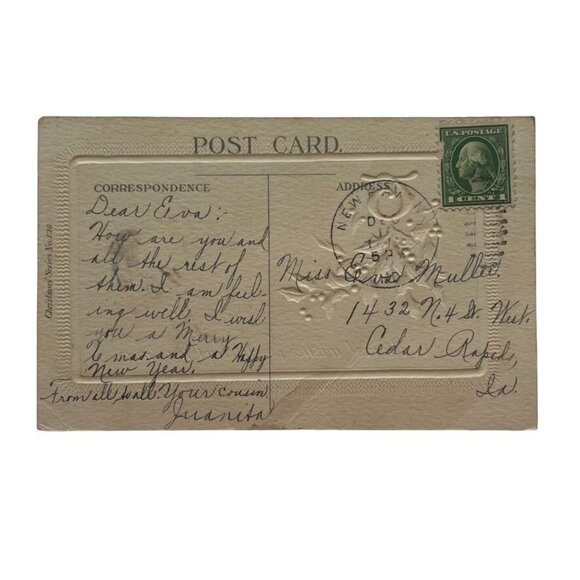 POST CARD.
CORRESPONDENCE
ADDRESS
U.S. POSTAGE
1 CENT 1
Christmas Series No. 136
NEW
DE
Dear Eva:-
How are you and
all the rest of
them. I am feel-
ing well. I wish
you a Merry
Xmas and a Happy
New Year.
From all, to all. Your cousin
Juanita
Miss Eva Mullee
1432 N. 4 St. West.
Cedar Rapids,
Ia.